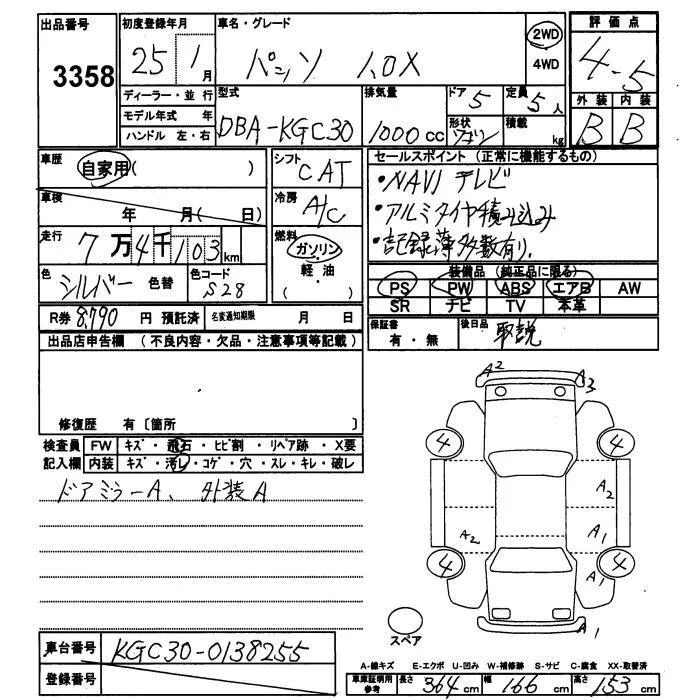 出品番号 3358
初度登録年月 25 1月
車名・グレード パッソ 1.0X
2WD
4WD
評価点 4.5
外装 内装
B B
ディーラー・並行
モデル年式 年
ハンドル 左・右
型式 DBA-KGC30
排気量 1000cc
ドア 5
形状 ワゴン
定員 5人
積載 kg
車歴 自家用( )
車検 年 月( 日)
走行 7万4千103km
色 シルバー 色替
色コード S28
シフト CAT
冷房 A/C
燃料 ガソリン
軽・油
( )
セールスポイント(正常に機能するもの)
・NAVI テレビ
・アルミタイヤ積み込み
・記録簿多数有り。
装備品(純正品に限る)
PS PW ABS エアB AW
SR ナビ TV 本革
R券 8,790 円 預託済 名変通知期限 月 日
保証書 有・無
後日品 取説
出品店申告欄(不良内容・欠品・注意事項等記載)
修復歴 有〔箇所 〕
検査員 FW キズ・飛石・ヒビ割・リペア跡・X要
記入欄 内装 キズ・汚れ・コゲ・穴・スレ・キレ・破レ
ドアミラーA、外装A
A2
A3
4 4
A2
A2 A1
4 4
A1
A1
スペア
車台番号 KGC30-0138255
登録番号
A-線キズ E-エクボ U-凹み W-補修跡 S-サビ C-腐食 XX-取替済
車庫証明用参考 長さ 364cm 幅 166cm 高さ 153cm